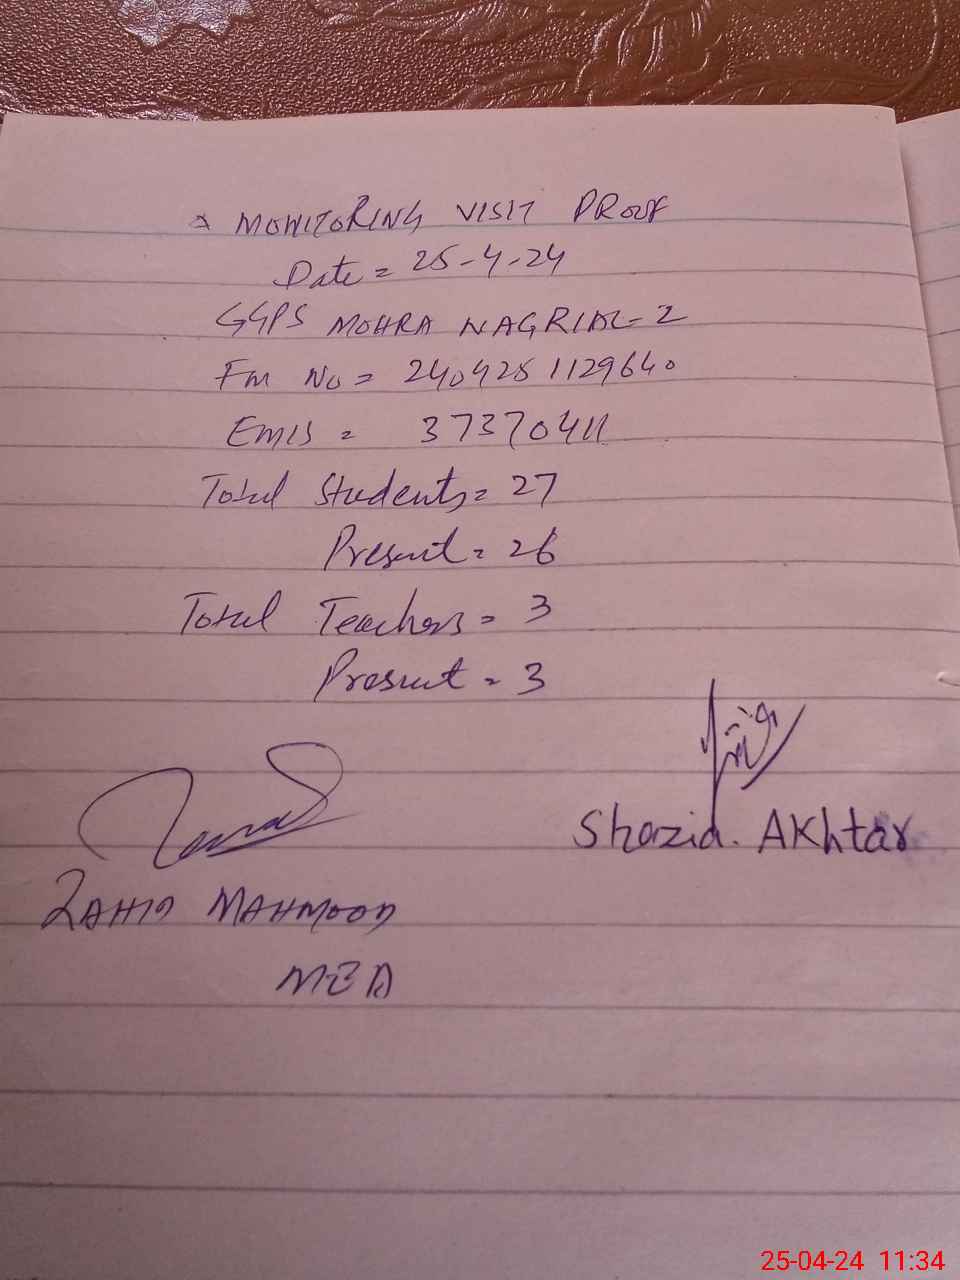 MONITORING VISIT PROOF
Date = 25-4-24
GGPS MOHRA NAGRIAL-2
Fm No = 2404251129640
EMIS = 37370411
Total Students = 27
Present = 26
Total Teachers = 3
Present = 3
Shazia. AKhtar
ZAHID MAHMOOD
MEA
25-04-24 11:34